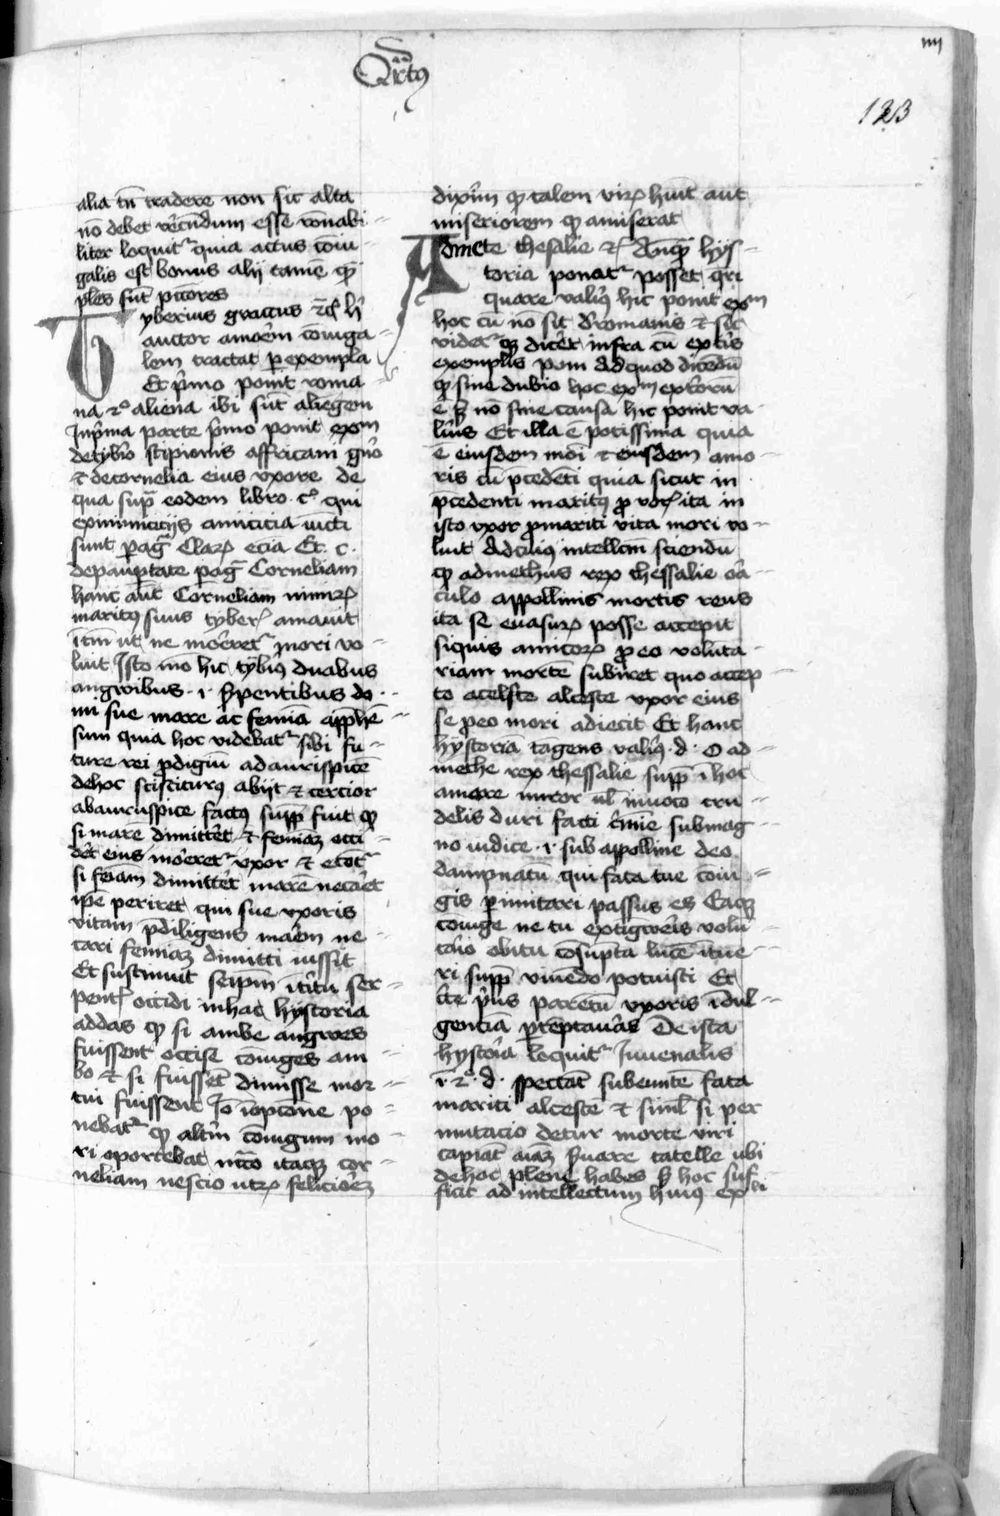 Qr̄tus
iiii
123
alia tn̄ tradere non sic alta
nō debet vēcundum esse rōnabi-
liter loquitr quia actus cōiu-
galis est bonus alij tamē
ples sūt
Tyberius graccus
auctor amorēm coniuga-
lem tractat per exempla
Et pͥmo ponit roma
na 2º aliena ibi
In pͥma parte pͥmo ponit exᵐ
de tybͥo scipionis affricani gnͦo
et de cornelia eius vxore de
qua supᵃ eodem libro. cͦ. qui
ex inimicicijs amicicia iūcti
sunt pagͣ claꝝ ecia Et. c.
de paupertate pagͣ Corneliam
hanc aūt Corneliam nimiꝝ
maritꝰ suus tyberꝰ amauit
itm̄ ut ne morēretr mori vo-
luit Isto mō hic tybͥꝰ duabus
angwibus .i. serpentibus do-
mi sue mare ac femiā apphē-
sum quia hoc videbatr sibi fu-
ture rei prodigiū ad aurispicē
de hoc sciscituꝰ abijt et cercior
ab auruspice factꝰ supp̄ fuit qꝫ
si marē dimittēt et femiaꝫ occi-
dēt eius morēretr vxor et
si feiam dimittēt marē necāet
ipē periret qui sue vxoris
vitam p̄diligens maēm ne-
cari femiaꝫ dimitti iussit
Et sustinuit seipm̄ ser-
pentͥ occidi in hac hystoria
addas qꝫ si ambe angwes
fuissent occise coniuges am-
bo et si fuissēt dimisse mor-
tui fuissent Iō ī opcōne po-
nebatr qꝫ altm̄ cōiugum mo-
ri oportebat itaqꝫ cor-
neliam nescio utꝝ feliciorēꝫ
dixim̄ qꝫ talem viꝝ hūit aut
miseriorem qꝫ amiserat
Admete thesalie Anqꝫ hys-
toria ponatr posset qri
quare valiꝰ hic ponit exᵐ
hoc cū nō sit romanis et sic
videtr qꝫ dicēt infra cū extis
exemplis poni Ad quod dicēdū
qꝫ sine dubio hoc exᵐ extorū
ē sꝫ nō sine causa hic ponit va-
lius Et illa ē potissima quia
ē eiusdem et eiusdem amo-
ris cū p̄cedēti quia sicut in
p̄cedenti maritꝰ ꝓ vxorͤ ita in
isto vxor ꝓ mariti vita mori vo-
luit Ad cuiꝰ intellcm̄ sciendū
qꝫ admethus rex thessalie orā-
culo appollinis mortis reus
ita se euasuꝝ posse accepit
si quis amicoꝝ ꝓ eo volūta-
riam mortē subiret quo accep-
to alceste vxor eius
se ꝓ eo mori adiecit Et hanc
hystoriā tāgens valiꝰ .d. O ad-
methe rex thessalie supp̄ ī hoc
amore miror ul̄ inuoco cru-
delis duri facti crimīe sub mag-
no iudice .i. sub appolline deo
dampnatū qui fata tue cōiu-
gis permutari passus es Eaqꝫ
cōiuge ne tu extigwēis volū-
tāio obitu cōsūpta lucē itue-
ri supp̄ viuēdo potuisti Et
cͤte pͥus parētū vxoris īdul-
gentiā De ista
hystoria loquitr Iuuenalis
.d. spectāt subeuntē fata
mariti alcestē et simͥl si per
mutacio detur morte viri
cupiāt aīaꝫ suare catelle ubi
de hoc plene habes sꝫ hoc suf-
ficit ad intellectum huiꝰ exᵐi